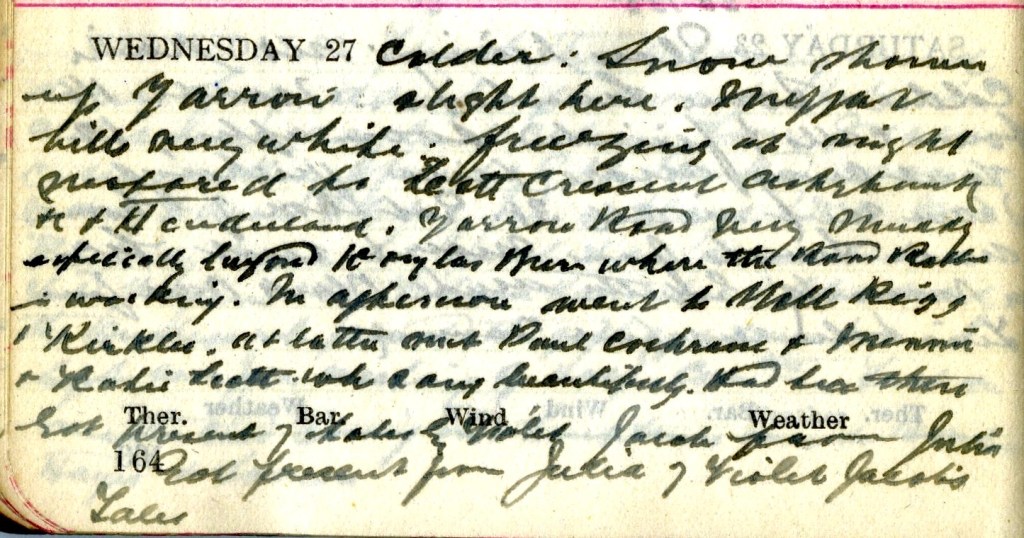 WEDNESDAY 27 Colder: Snow showers
up Yarrow: slight here. Moffat
hills very white. freezing at night
motored to Scott Crescent
& Henderland. Yarrow Road very muddy
especially beyond Douglas Burn where the Road Roller
is working. In afternoon went to Mill Rigg
& Kirklea. at latter met Paul Cochrane & Minnie
& Katie Scott who sang beautifully. Had tea there
Ther. Bar. Wind Weather
Got present of Tales by Violet Jacob from Julia
164
Got present from Julia of Violet Jacob's
Tales